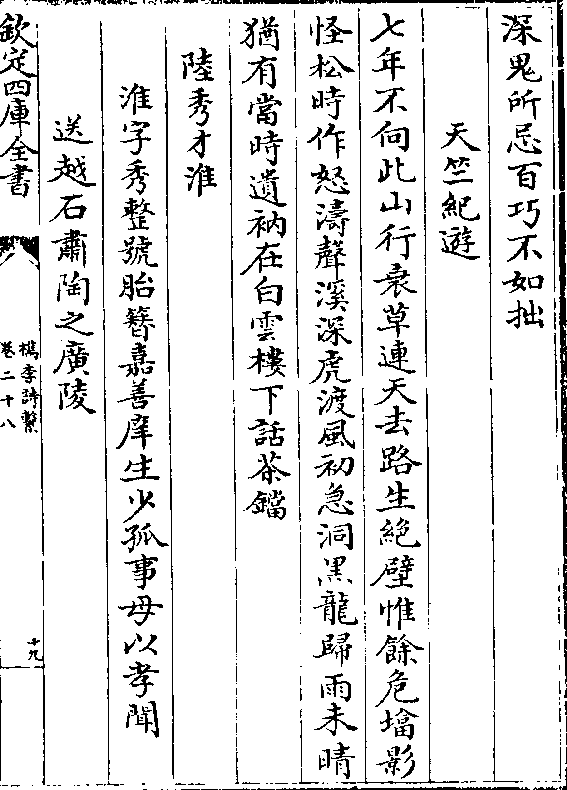 深鬼所忌百巧不如拙
天竺紀遊
七年不向此山行衰草連天去路生絶壁惟餘危墖影
怪松時作怒濤聲溪深虎渡風初急洞黑龍歸雨未晴
猶有當時遺衲在白雲樓下話茶鐺
陸秀才淮
淮字秀整號胎簪嘉善庠生少孤事母以孝聞
送越石肅陶之廣陵
欽定四庫全書
檇李詩繫
卷二十八
十九